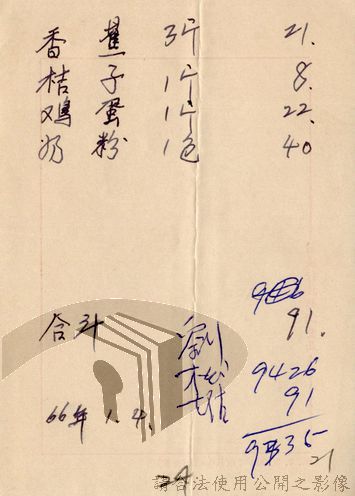 香蕉 3斤 21.
桔子 1斤 8.
鸡蛋 1斤 22.
奶粉 1包 40
合計 91.
9426
91
9335
21
66年 1. 4.
24
請合法使用公開之影像